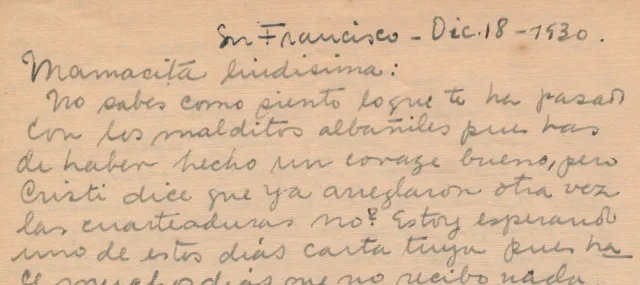 Sn Francisco - Dic. 18 - 1930.
Mamacita lindisima:
No sabes como siento lo que te ha pasado
con los malditos albañiles pues has
de haber hecho un corage bueno, pero
Cristi dice que ya arreglaron otra vez
las cuarteaduras no? Estoy esperando
uno de estos días carta tuya pues ha
ce muchos días que no recibo nada.